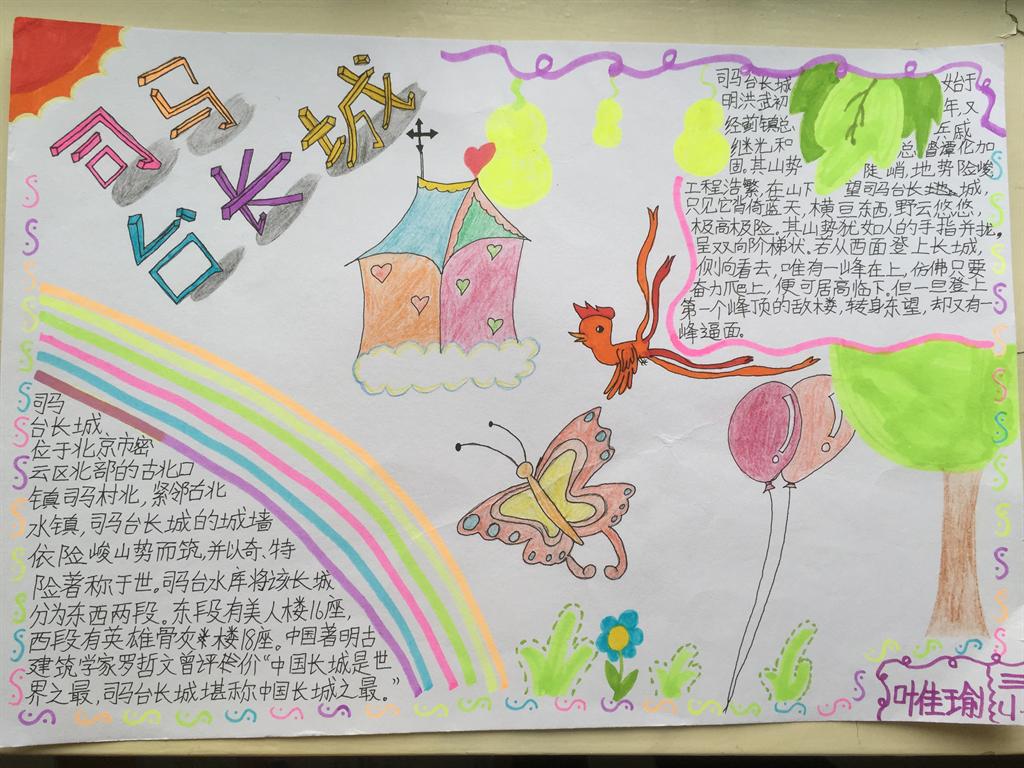 司马
台长城
司马台长城 始于
明洪武初 年,又
经蓟镇总 兵戚
继光,和 总督谭伦加
固,其山势 陡峭,地势险峻
工程浩繁,在山下 望司马台长城,
只见它背倚蓝天,横亘东西,野云悠悠,
极高极险。其山势犹如人的手指并拢,
呈双向阶梯状。若从西面登上长城,
侧向看去,唯有一峰在上,份佛只要
奋力爬上,便可居高临下,但一旦登上
第一个峰顶的敌楼,转身东望,却又有一
峰逼面。
司马
台长城、
位于北京市密
云区北部的古北口
镇司马村北,紧邻古北
水镇,司马台长城的城墙
依险峻山势而筑,并以奇、特
险著称于世。司马台水库将该长城
分为东西两段。东段有美人楼16座,
西段有英雄骨楼18座。中国著明古
建筑学家罗哲文曾评价“中国长城是世
界之最,司马台长城堪称中国长城之最。”
叶佳瑜